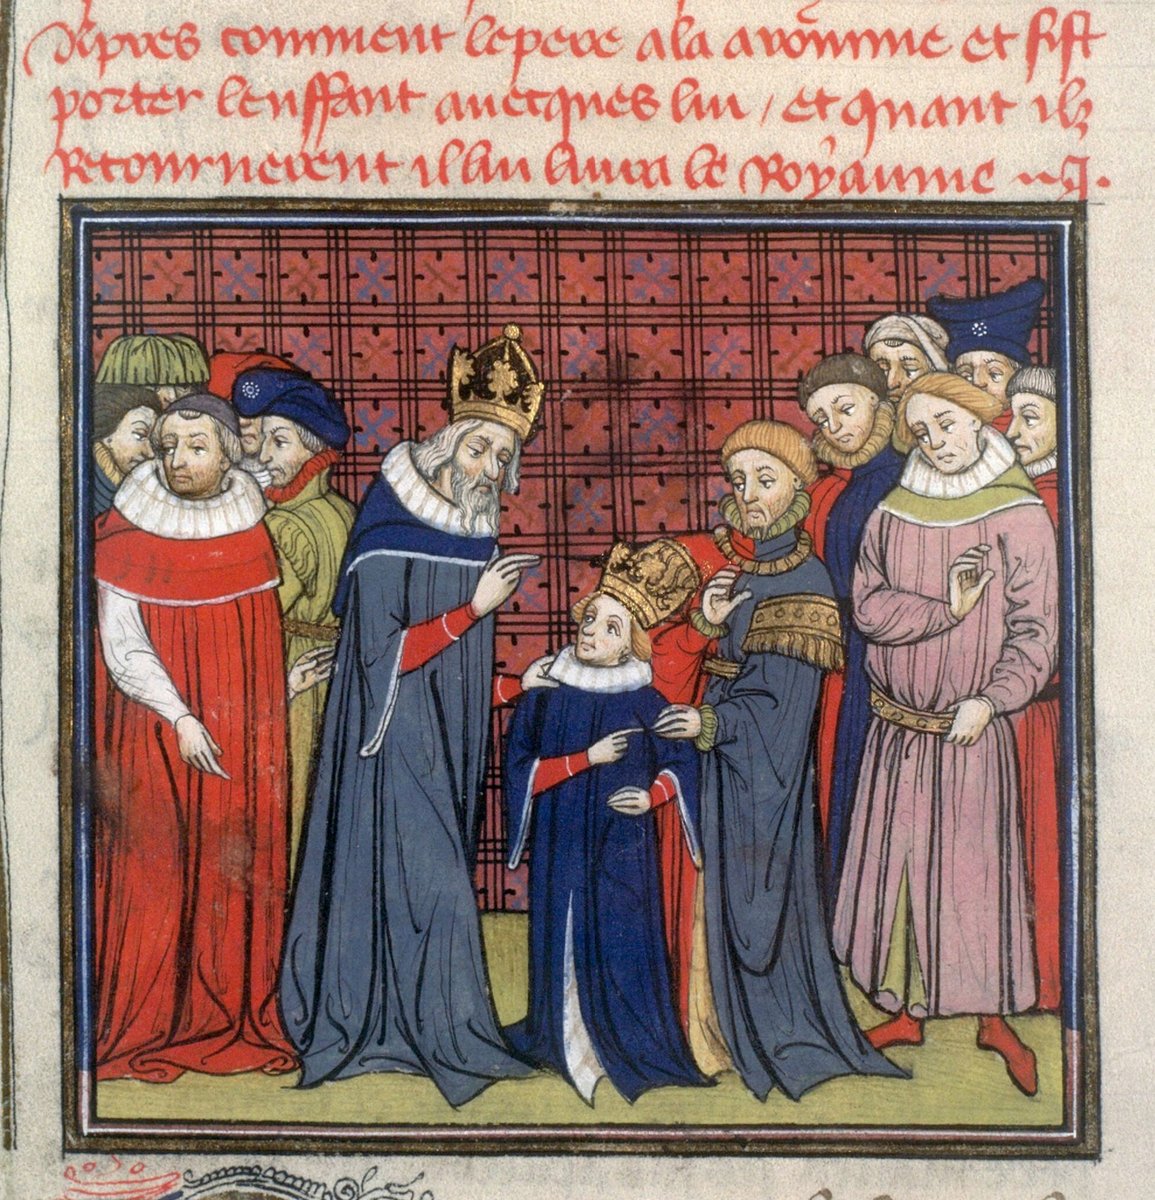 Apres comment le pere ala a rōmme et fist
porter lenffant auecques lui / et quant ilz
Retournerent il lui liura le Royaume